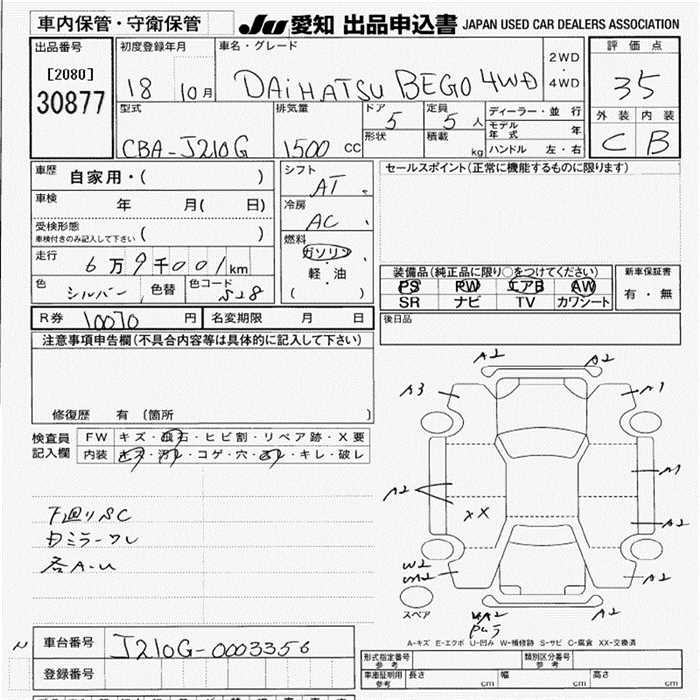 車内保管・守衛保管 JU 愛知 出品申込書 JAPAN USED CAR DEALERS ASSOCIATION
出品番号 初度登録年月 車名・グレード 評価点
[2080] 18 10月 DAiHATSU BEGO 4WD 2WD・4WD 35
30877
型式 排気量 ドア 5 定員 5人 ディーラー・並行 外装 内装
CBA-J210G 1500 CC 形状 積載 kg モデル年式 年 C B
ハンドル 左・右
車歴 自家用・( ) シフト AT セールスポイント(正常に機能するものに限ります)
車検 年 月( 日) 冷房 AC
受検形態 ( )
車検付きのみ記入して下さい
燃料 ガソリン・軽油 ( )
走行 6万9千001km
装備品(純正品に限り○をつけてください) 新車保証書
色 シルバー 色替 色コード S28 PS PW エアB AW 有・無
SR ナビ TV カワシート
R券 10070 円 名変期限 月 日 後日品
注意事項申告欄(不具合内容等は具体的に記入して下さい)
修復歴 有 〔箇所 〕
検査員記入欄 FW キズ・飛石・ヒビ割・リペア跡・X要
内装 キズ・汚レ・コゲ・穴・凹・キレ・破レ
A2 A2
A3 A1
A2 A1
XX A2
W2 A2
スペア
下廻りSC
各A-U
A-キズ E-エクボ U-凹み W-補修跡 S-サビ C-腐食 XX-交換済
車台番号 J210G-0003356
登録番号
形式指定番号 参考 類別区分番号 参考
車庫証明用 参考 長さ 幅 高さ cm